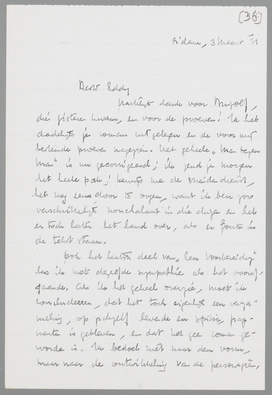 (36)
A'dam, 3 maart '31
Beste Eddy,
Hartelijk dank voor
die gisteren kwam, en voor de proeven! Ik heb
dadelijk je roman uitgelezen en de voor mij
bestemde proeven nagezien. Het geheele "Man tegen
Man" is nu gecorrigeerd; ik zend je morgen
het heele pak;
het nog eens door te ogen, want ik ben zoo
nonchalant in die dingen en heb
er toch laten het land over, als er fouten in
de tekst staan.
Ook het laatste deel van "Een Voorbereiding"
las ik met dezelfde sympathie als het vooraf-
gaande. Als ik het geheel overzie, moet ik
constateeren, dat het toch eigenlijk een verza-
meling, op zichzelf levende en
is gebleven, en dat het geen roman ge-
worden is. Ik bedoel niet naar den vorm,
maar naar de ontwikkeling van de personages,